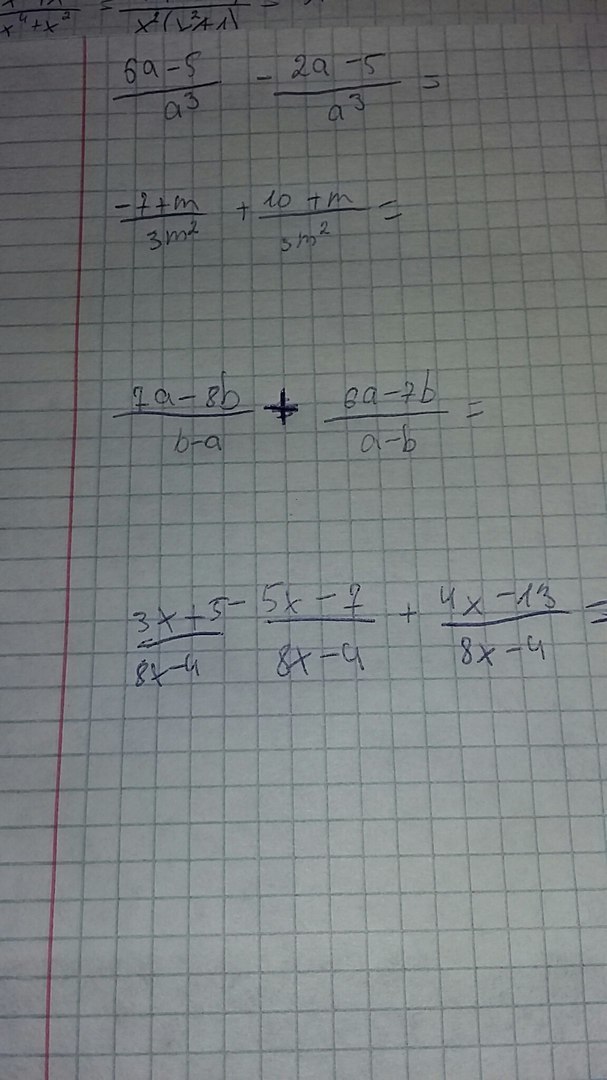 x⁴+x² = x²(x²+1) =
(6a-5)/a³ - (2a-5)/a³ =
(-7+m)/3m² + (10+m)/3m² =
(7a-8b)/(b-a) + (6a-7b)/(a-b) =
(3x+5)/(8x-4) - (5x-7)/(8x-4) + (4x-13)/(8x-4) =